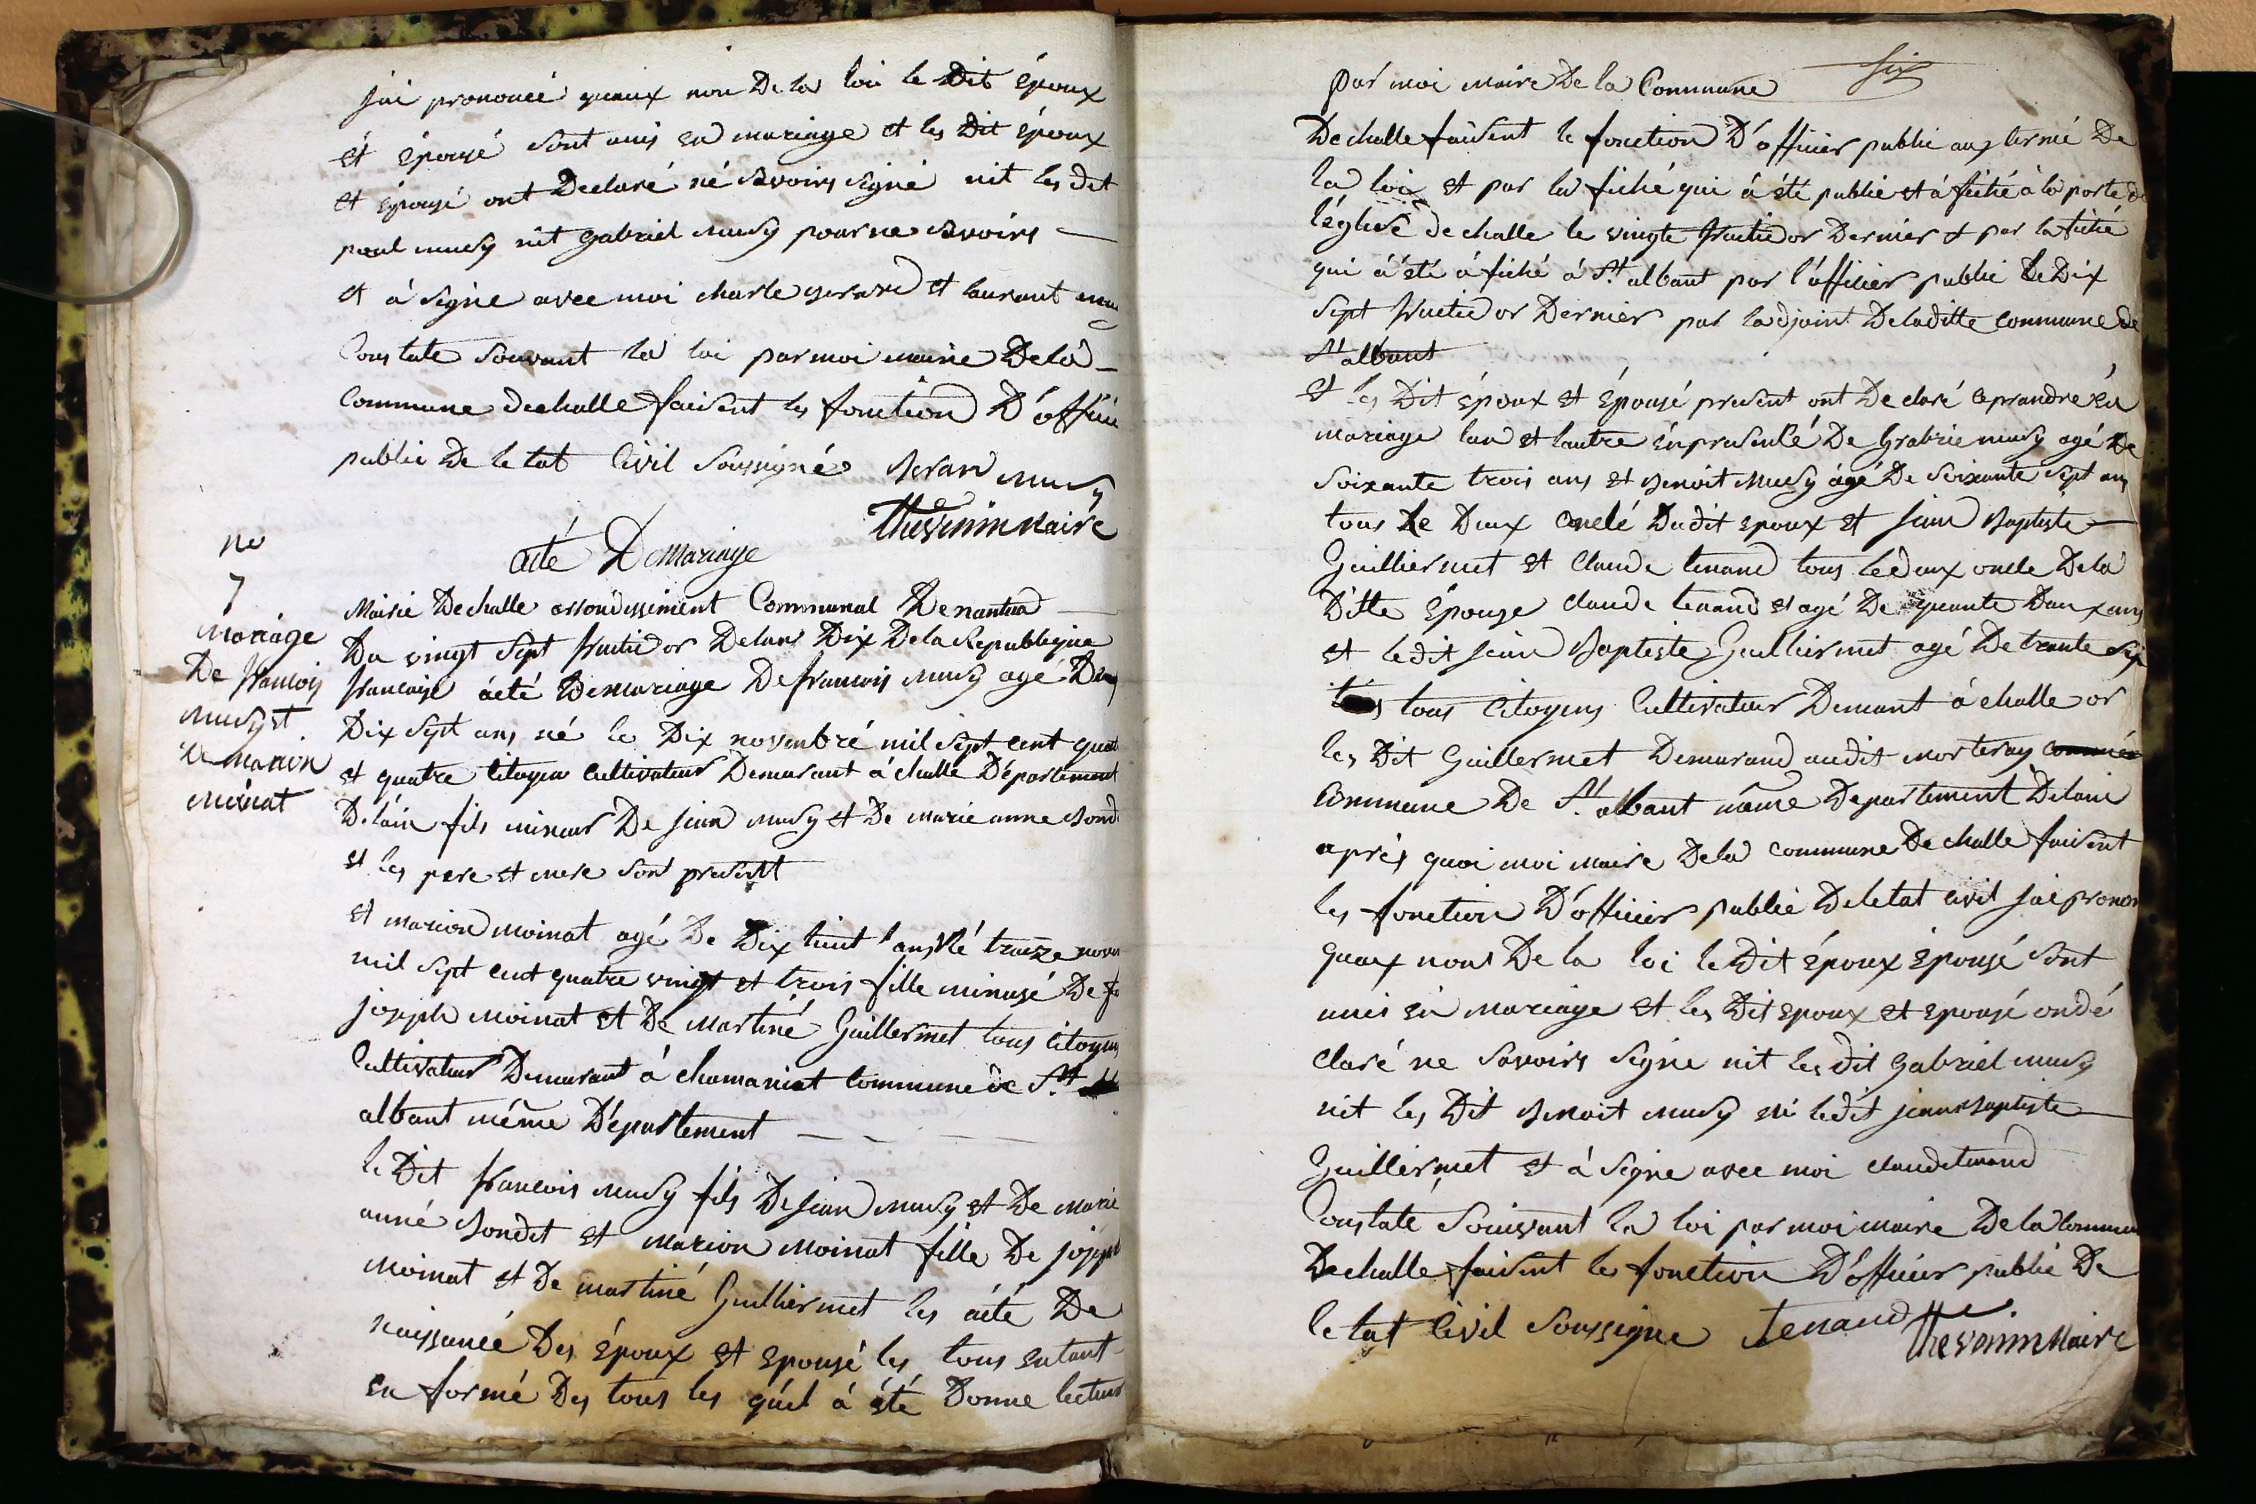 jai prononcé quaux non De la loi le Dit époux
et épousé sont unis en mariage et les Dit époux
et épousé ont Declaré né savoirs signé nit les dit
paul musy nit gabriel musy pour ne savoirs
et à signe avec moi charle gerard et laurant
Constate souvant la loi par moi maire De la
Commune dechalle faisent les fonction D'offici
public De letat Civil soussigné Geran Musy
Thevenin Maire
No
7
Mariage
De francois
Musy et
De marion
Moinat
acté De Mariage
Mairie Dechalle arrondissiment Communal De nantua
Du vingt sept fructidor Delans Dix De la Republeque
francaise acté De mariage De francois Musy agé De
Dix sept ans né le Dix novembré mil sept cent quat
et quatre Citoyen Cultivateur Demurant à challe Département
Delain fils mineur De jean musy et De marie anne Bond
et les pere et mere sont presentt
et marion moinat agé De Dix huit ans Né traize nov
mil sept cent quatre vingt et trois fille minusé De
joseph moinat et De Martiné Guillermet tous Citoyens
Cultivateur Demurant à chamaniat Commune de St
albant même Département
le Dit francois musy fils De jean musy et De Marie
anné Bondet et Marion Moinat fille De joseph
Moinat et De martiné Guilliermet les acté De
naissancé Des époux et epousé les tous entant
en formé Des tous les quel à été Donne lectur
par moi maire De la Commune six
Dechalle faisent le fonction D'officier public aux termé De
la loix et par la fiché qui à été publié et à fiché à la porte de
l'églisé de challe le vingte fructidor Dernier et par la fiché
qui à été à fiché à St albant par l'officier public le Dix
sept fructidor Dernier par ladjoint Deladitte commune de
St albant
et les Dit époux et Épousé present ont Declaré ceprandré en
mariage lun et lautre énprésenté De Grabrie musy agé De
soixante trois ans et Benoit Musy àgé De soixante sept ans
tous le Deux onclé Dudit epoux et jean Baptiste
Guilliermet et Claude tenand tous le deux oncle De la
Ditte Épouse claude tenand et agé De quante Deux ans
et ledit jean Baptiste Guilliermet agé De trante six
tous Citoyens Cultivateur Demant à challe or
les Dit Guillermet Demurand audit morteray
Commune De St albant même Departement Delain
après quoi moi Maire Dela commune De challe faisent
les fonction D'officier public De letat civil jai pronon
quaux nons De la loi le Dit époux épousé sont
unis en mariage et les Dit epoux et epousé ondé
claré ne savoirs signe nit les dit Gabriel musy
nit les Dit Benoit Musy ni ledit jean Baptiste
Guilliermet et à signe avec moi claude tenand
Constaté suivant la loi par moi maire De la Commun
De challe faisent les fonction D'officier public De
letat Civil soussigne Tenand Thevenin Maire